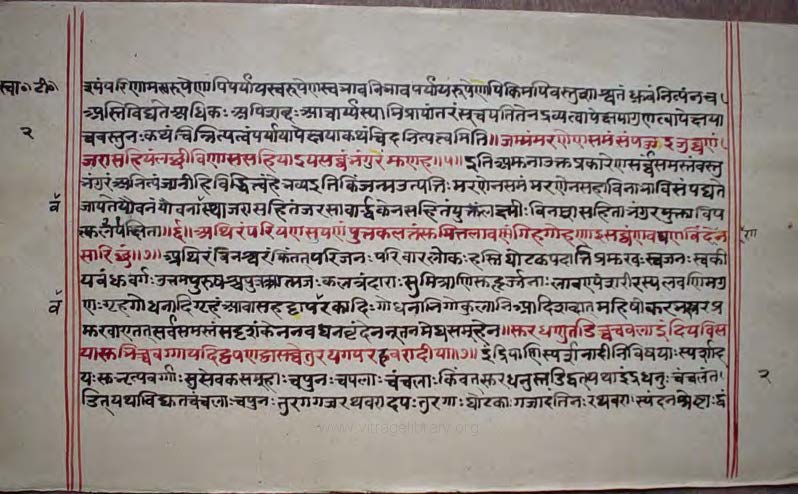 स्वा॰ टी॰
२
रूपं परिणामस्वरूपेणापि पर्यायस्वरूपेण स्वभावविभावपर्यायरूपेणापि किमपि वस्तु शाश्वतं ध्रुवं नित्यं न च
अस्ति विद्यते अधिकः अपिशब्दः आचार्यस्याभिप्रायांतरं सूचयति तेन द्रव्यत्वापेक्षया गुणत्वापेक्षया
च वस्तुनः कथंचिन्नित्यत्वं पर्यायापेक्षया कथंचिदनित्यत्वमिति ॥ जम्मं मरणेण समं संपज्जइ जुव्वणं
जरासहियं लच्छी विणाससहिया इय सव्वं भंगुरं मुणह ॥५॥ इति अमुना उक्तप्रकारेण सर्वं समस्तं वस्तु
भंगुरं अनित्यं जानीहि विद्धि त्वं हे भव्य इति किं जन्म उत्पत्तिः मरणेन समं मरणेन सह विनाभावि संपद्यते
जायते यौवनं यौवनावस्था जरासहितं जरसा वार्द्धकेन सहितं युक्तं लक्ष्मीः विनाशसहिता भंगुरयुक्ता विप
॥६॥ अथिरं परियणसयणं पुत्तकलत्तं सुमित्तलावण्णं गिहगोहणाइ सव्वं णवघणविंदेन
सारिच्छं ॥ अथिरं विनश्वरं किं तत् परिजनः परिवारलोकः हस्तिघोटकपदातिप्रमुखः स्वजनः स्वकी
यबंधुवर्गः उत्तमपुरुषश्च पुत्र आत्मजः कलत्रं दाराः सुमित्राणि सुहृज्जनाः लावण्यं शरीरस्य लवणिमगु
णः गृहगोधनादि गृहं आवासहट्टापवरकादिः गोधनानि गोकुलानि आदिशब्दात् महिषीकरभखरप्र
मुखाः एतत् सर्वं समस्तं सदृशं केन नवघनवृंदेन नूतनमेघसमूहेन ॥ सुरधणुतडिव्वचवला इंदियविस
या सुभिच्चवग्गा य दिट्ठपणट्ठा सव्वे तुरयगयरहवरादीया ॥७॥ इंद्रियाणि स्पर्शनादीनि विषयाः स्पर्शाद
यः सुभृत्यवर्गाः सुसेवकसमूहाः च पुनः चपला चंचलाः किंवत् सुरधनुस्तडिद्वत् यथा इंद्रधनुः चंचलं त
डित् यथा विद्युत् चंचला च पुनः तुरगगजरथवरादयः तुरगाः घोटकाः गजा दंतिनः रथवराः स्यंदनश्रेष्ठाः द्वं
२
www.vitragelibrary.org